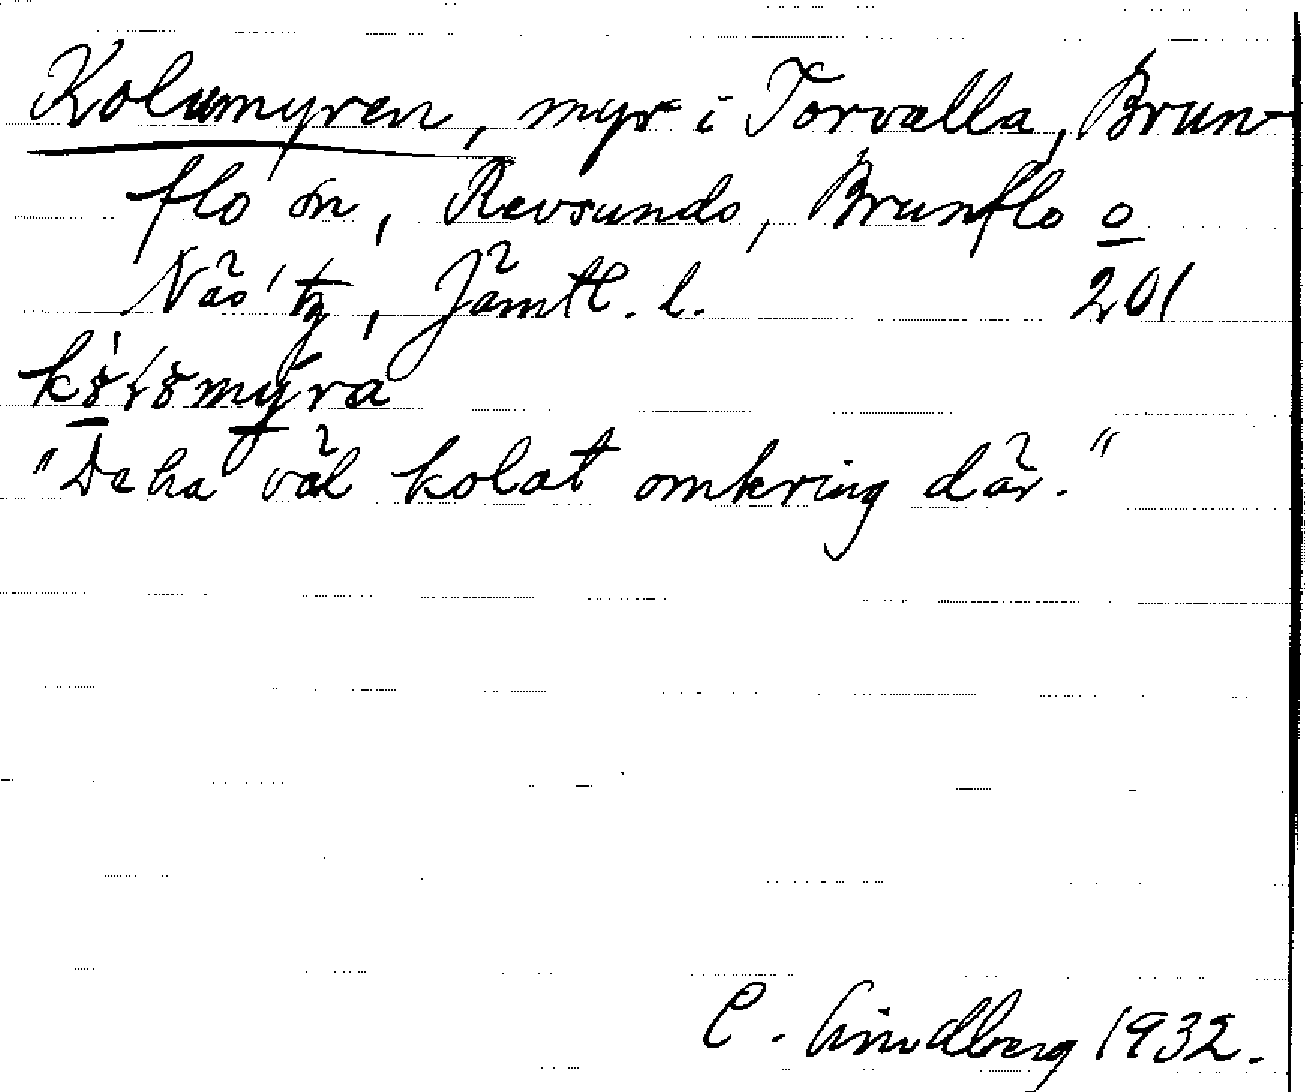 Kolumyren, myr i Torvalla, Brun-
flo sn, Revsunds, Brunflo o
Näs' tg, Jämtl. l. 201
"De ha väl kolat omkring där."
C. Lindberg 1932.